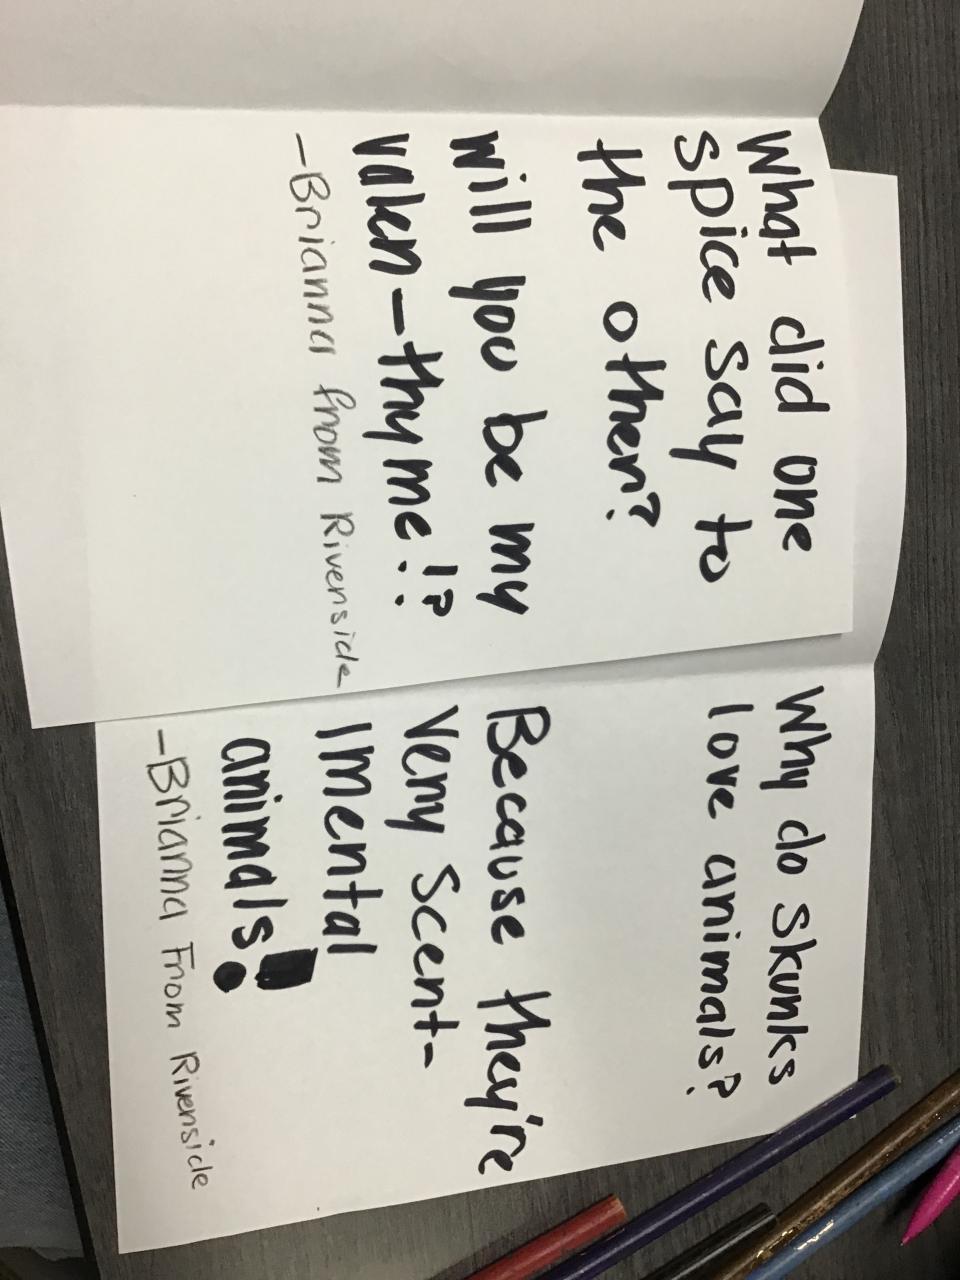 What did one
spice say to
the other?
Will you be my
valen-thyme!?
-Brianna from Riverside
Why do skunks
love animals?
Because they're
very scent-
imental
animals!
-Brianna From Riverside